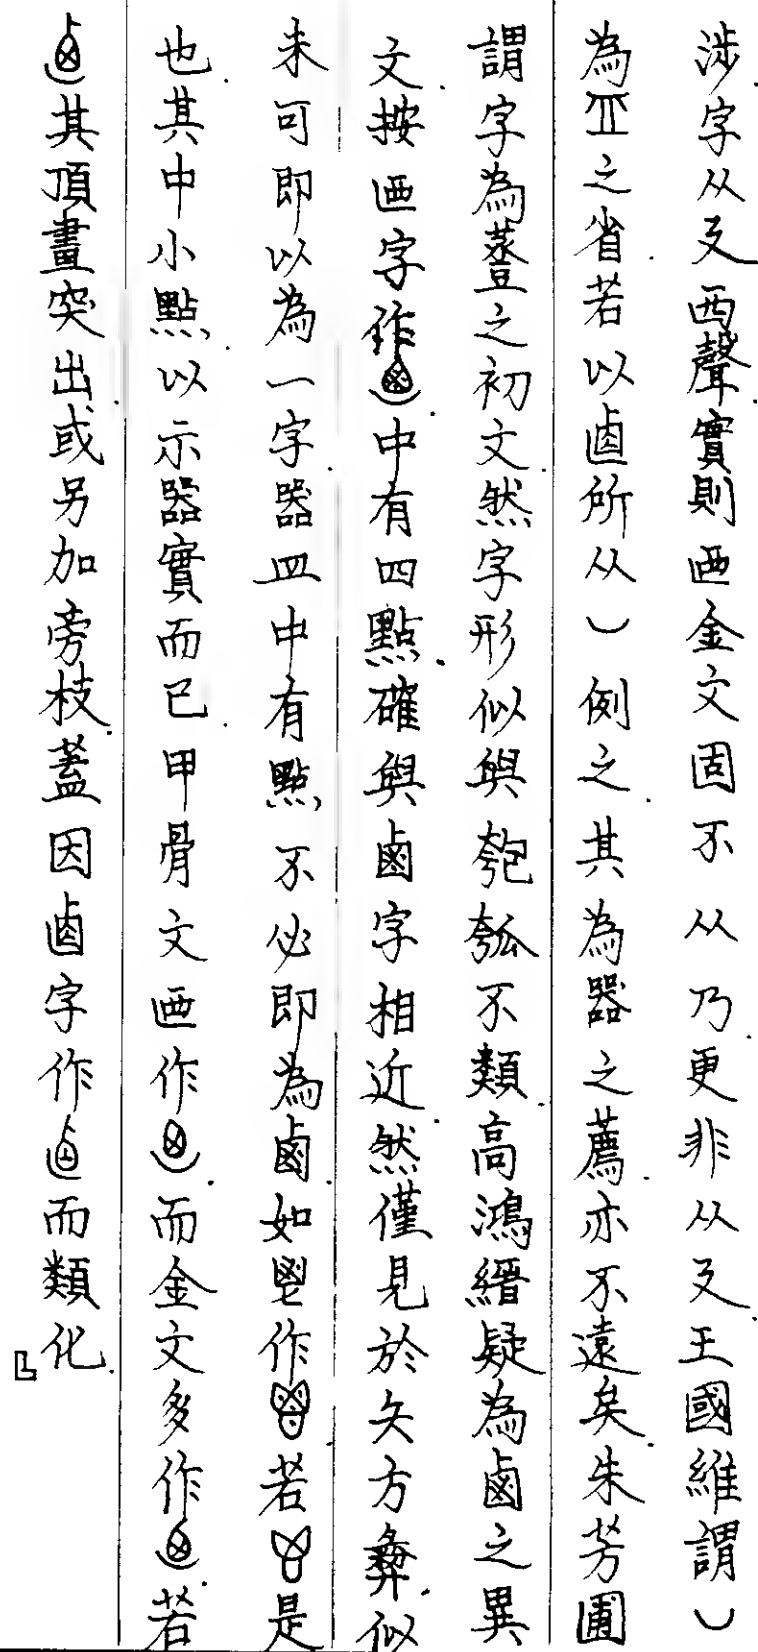 涉字从㔾西聲實則逎金文固不从乃更非从㔾王國維謂
為之省若以卣所从例之其為器之薦亦不遠矣朱芳圃
謂字為荎之初文然字形似與匏瓠不類高鴻縉疑為鹵之異
文按字作中有四點確與鹵字相近然僅見於夨方彝似
未可即以為一字器皿中有點不必即為鹵如鬯作若是
也其中小點以示器實而已甲骨文作而金文多作若
其頂畫突出或另加旁枝蓋因卣字作而類化